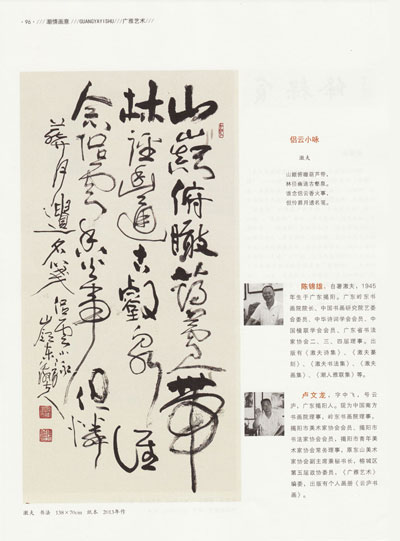 ·96· /// 潮情画意 ///GUANGYAYISHU///广雅艺术///
山巅俯瞰
林径幽通古叡泉 谁
念侣云香火事 但怜
葬月遗名笺 侣云小咏
侣云小咏
夫
山巅俯瞰葫芦带，
林径幽通古叡泉。
谁念侣云香火事，
但怜葬月遗名笺。
陈锦雄，自署 夫，1945
年生于广东揭阳。广东岭东书
画院院长、中国书画研究院艺委
会委员、中华诗词学会会员、中
国楹联学会会员、广东省书法
家协会二、三、四届理事。出
版有《 夫诗集》、《 夫篆
刻》、《 夫书法集》、《 夫
画集》、《潮人雅联集》等。
卢文龙，字中飞，号云
庐，广东揭阳人。现为中国南方
书画院理事，岭东书画院理事，
揭阳市美术家协会会员、揭阳市
书法家协会会员、揭阳市青年美
术家协会常务理事，原东山美术
家协会副主席兼秘书长，榕城区
第五届政协委员，《广雅艺术》
编委，出版有个人画册《云庐书
画》。
夫 书法 138×70cm 纸本 2013年作